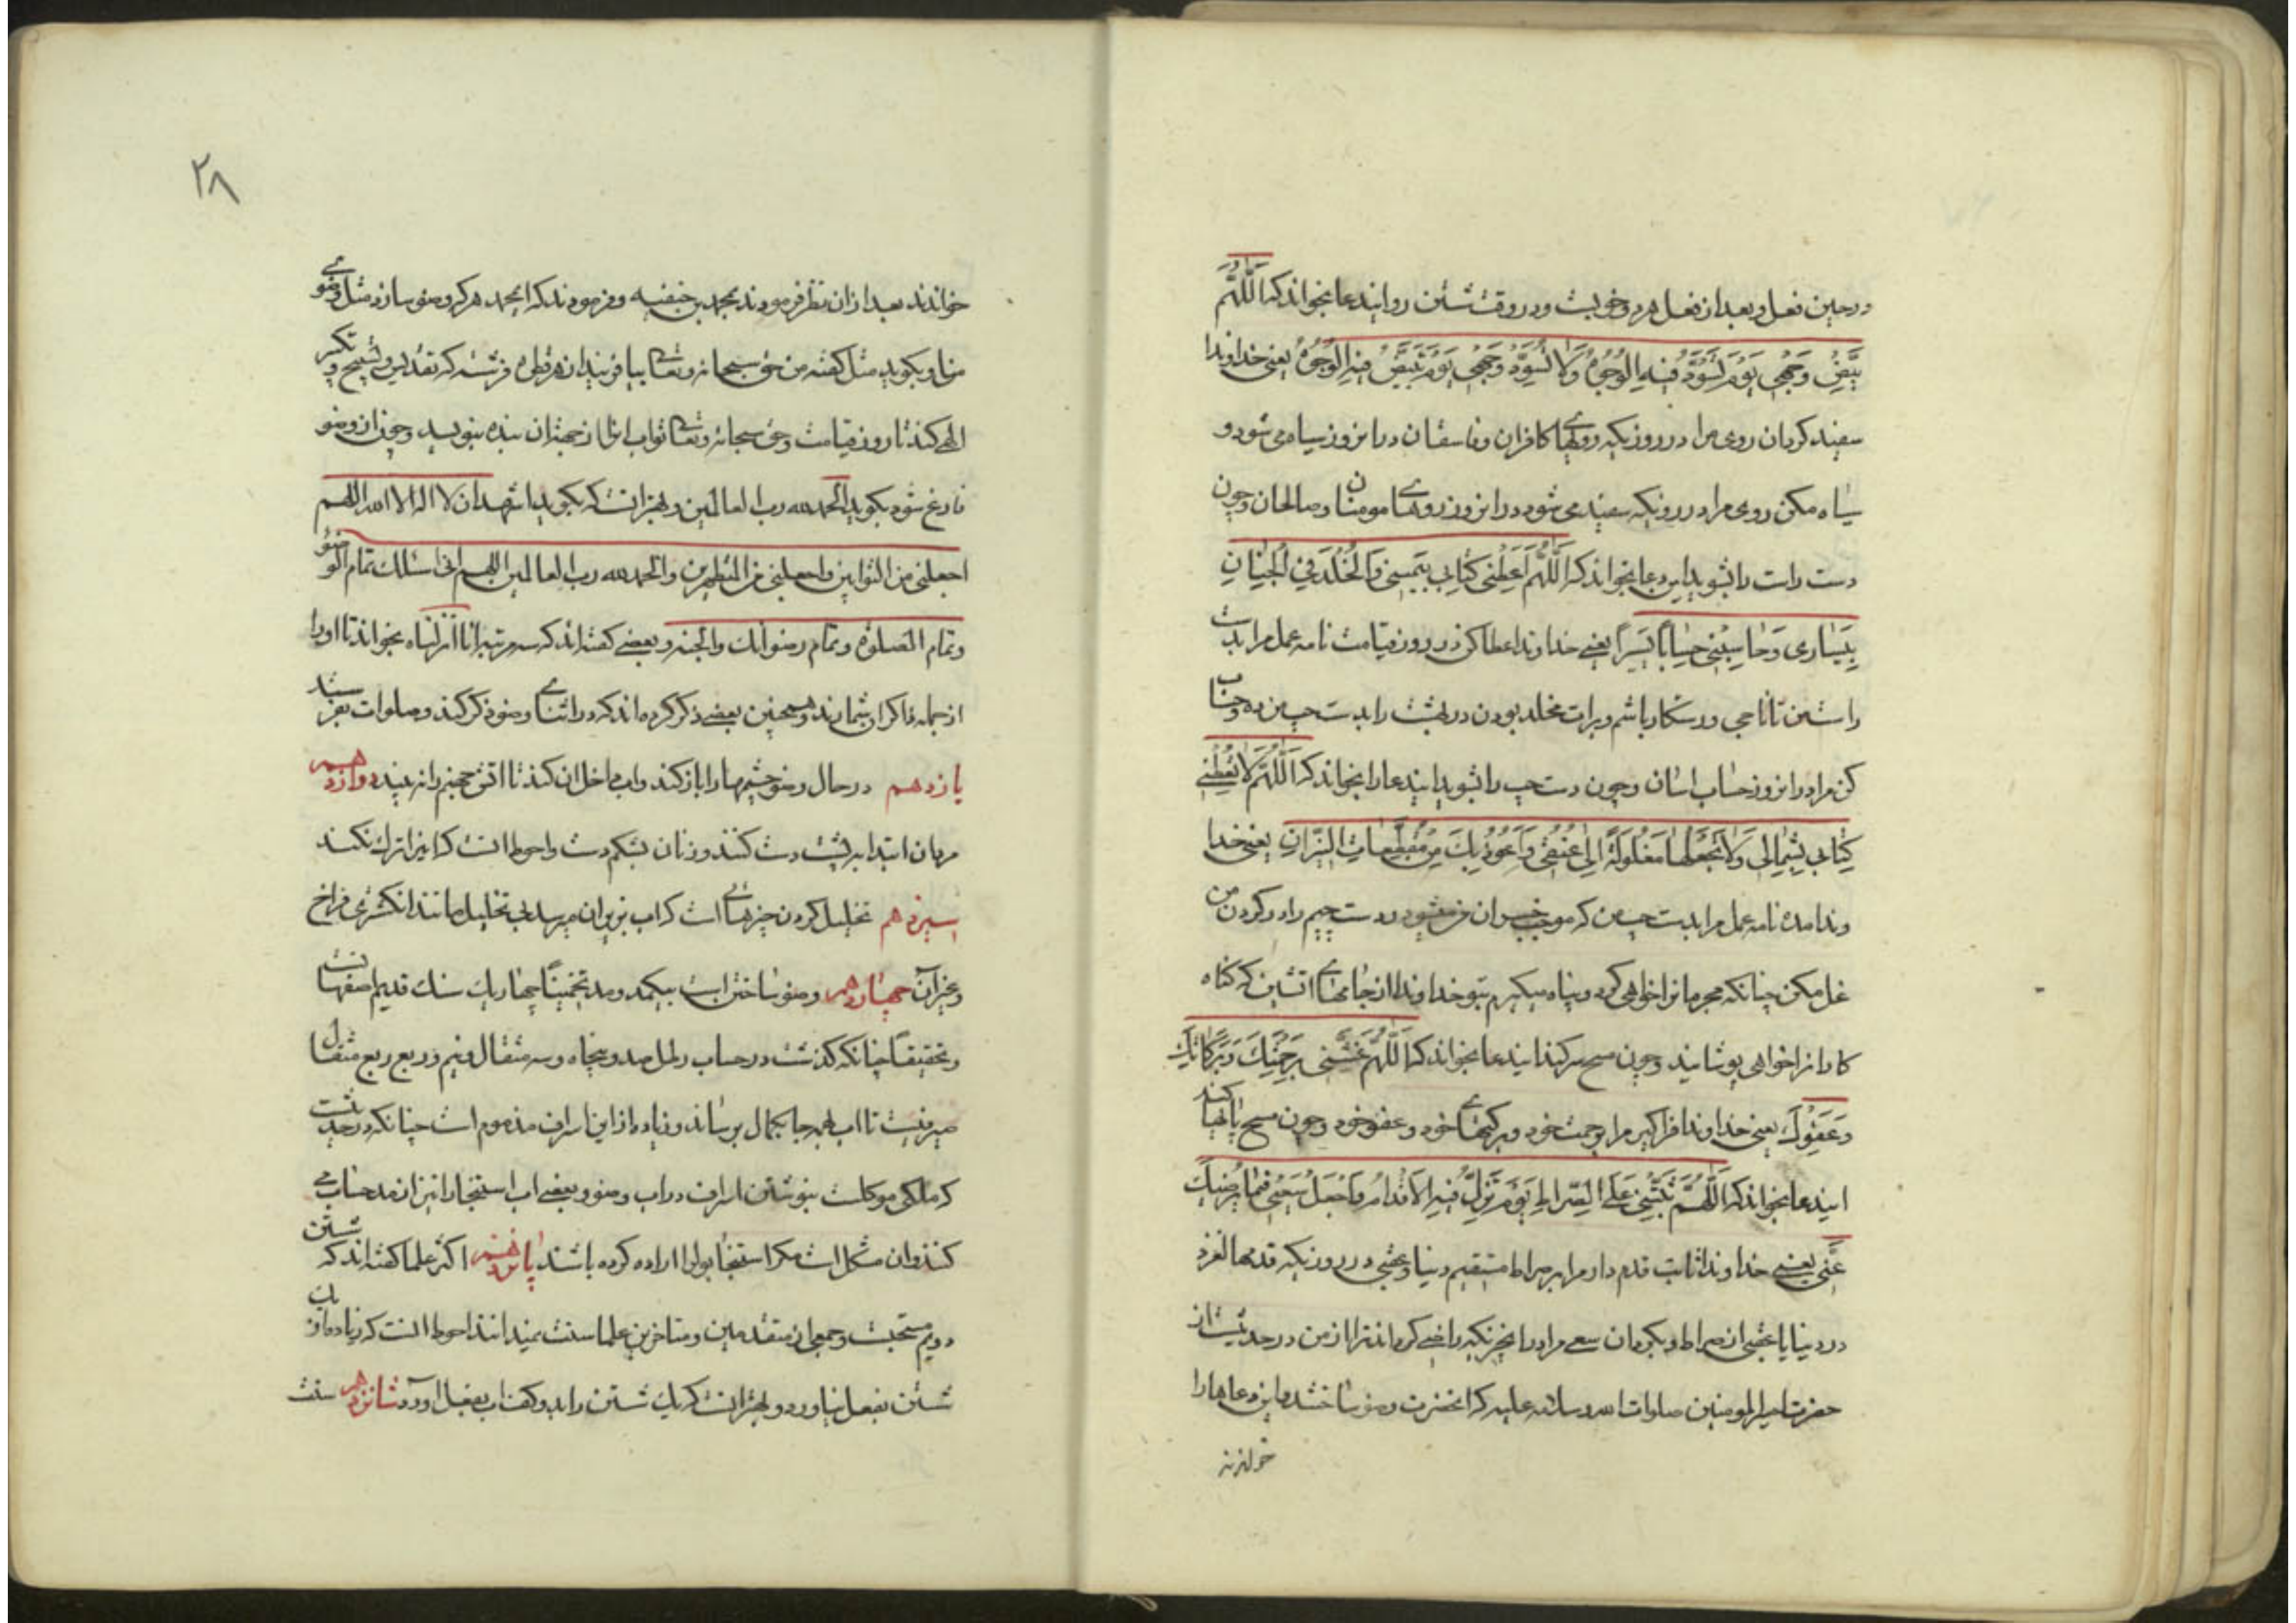 در حین فعل و بعد از فعل هر دو خوبست و در وقت شستن رو ایندعا بخواند که اَللّٰهُمَّ
بَیِّضْ وَجْهِی یَوْمَ تَسْوَدُّ فِیهِ الْوُجُوهُ وَلَا تُسَوِّدْ وَجْهِی یَوْمَ تَبْیَضُّ فِیهِ الْوُجُوهُ یعنی خداوندا
سفید کردان روی مرا در روزیکه رویهای کافران و فاسقان در انروز سیاه می شود و
سیاه مکن روی مرا در روزیکه سفید می شود در انروز روهای مومنان و صالحان و چون
دست راست را بشوید این دعا بخواند که اَللّٰهُمَّ اَعْطِنِی کِتَابِی بِیَمِینِی وَالْخُلْدَ فِی الْجِنَانِ
بِیَسَارِی وَحَاسِبْنِی حِسَابًا یَسِیرًا یعنی خداوندا عطا کن در روز قیامت نامه عمل مرا بدست
راست من تا ناجی و رستکار باشم و برات مخلد بودن در بهشت را بدست چپ من ده و حساب
کن مرا در انروز حساب اسان و چون دست چپ را بشوید ایندعا را بخواند که اَللّٰهُمَّ لَا تُعْطِنِی
کِتَابِی بِشِمَالِی وَلَا تَجْعَلْهَا مَغْلُولَةً اِلٰی عُنُقِی وَاَعُوذُ بِکَ مِنْ مُقَطَّعَاتِ النِّیرَانِ یعنی خدا
وندا مده نامه عمل مرا بدست چپ من که موجب خسران من میشود و دست چپم را در کردن من
غل مکن چنانکه مجرمانرا خواهی کرد و پناه میکیرم بتو خداوندا از جامهای اتشین که کناه
کارانرا خواهی پوشانید و چون مسح سر کند ایندعا بخواند که اَللّٰهُمَّ غَشِّنِی بِرَحْمَتِکَ وَبَرَکَاتِکَ
وَعَفْوِکَ یعنی خداوندا فراکیر مرا برحمت خود و برکتهای خود و عفو خود و چون مسح پاها کند
ایندعا بخواند که اَللّٰهُمَّ ثَبِّتْنِی عَلَی الصِّرَاطِ یَوْمَ تَزِلُّ فِیهِ الْاَقْدَامُ وَاجْعَلْ سَعْیِی فِیمَا یُرْضِیکَ
عَنِّی یعنی خداوندا ثابت قدم دار مرا بر صراط مستقیم دنیا و عقبی در روزیکه قدمها لغزد
در دنیا یا عقبی از صراط و بکردان سعی مرا در انچیزیکه راضی کرداند ترا از من در حدیثست از
حضرت امیرالمومنین صلوات الله و سلامه علیه که انحضرت وضو ساختند و این دعاها را
خواندند
۲۸
خواندند بعد از ان نظر فرمودند بمحمد بن حنفیه و فرمودند که ایمحمد هر که وضو سازد مثل وضوی
من و بکوید مثل کفته من حق سبحانه و تعالی بیافریند از هر قطره فرشته که تقدیس و تسبیح و تکبیر
الهی کند تا روز قیامت و حق سبحانه و تعالی ثواب انرا از جهة ان بنده بنویسد و چون از وضو
فارغ شود بکوید الحمد لله رب العالمین و بهتر انست که بکوید اشهد ان لا اله الا الله اللهم
اجعلنی من التوابین واجعلنی من المتطهرین والحمد لله رب العالمین اللهم انی اسئلک تمام الوضوء
وتمام الصلوة وتمام رضوانک والجنه و بعضی کفته اند که سه مرتبه انا انزلناه بخواند تا او را
از جمله ذاکران شمارند و همچنین بعضی ذکر کرده اند که در اثنای وضو ذکر کند و صلوات بفرستد
یازدهم در حال وضو چشمها را باز کند و اب داخل ان کند تا اتش جهنم را نه بیند دوازدهم
مردان ابتدا به پشت دست کنند و زنان بشکم دست و احوط انست که اینرا ترک نکنند
سیزدهم تخلیل کردن چیزهائی است که اب بزیر ان میرسد بی تخلیل مانند انکشتری فراخ
و غیر آن چهاردهم وضو ساختن است بیکمد و مد تخمینًا چهار یک سنک قدیم اصفهانست
و تحقیقًا چنانکه کذشت در حساب رطل صد و پنجاه و سه مثقال و نیم و ربع ربع مثقال
صیرفیست تا اب بهمه جا بکمال برساند و زیاده از این اسراف مذموم است چنانکه در حدیثست
که ملکی موکلست بنوشتن اسراف در اب وضو و بعضی اب استنجا را نیز از مد حساب می
کنند و ان مشکل است مکر استنجا بول را اراده کرده باشند پانزدهم اکثر علما کفته اند که شستن
دویم مستحبست و جمعی از متقدمین و متاخرین علما سنت نمیدانند احوط انست که زیاده از یک
شستن بفعل نیاورد و بهتر انست که یک شستن را بدو کف اب بعمل اورد شانزدهم سنت